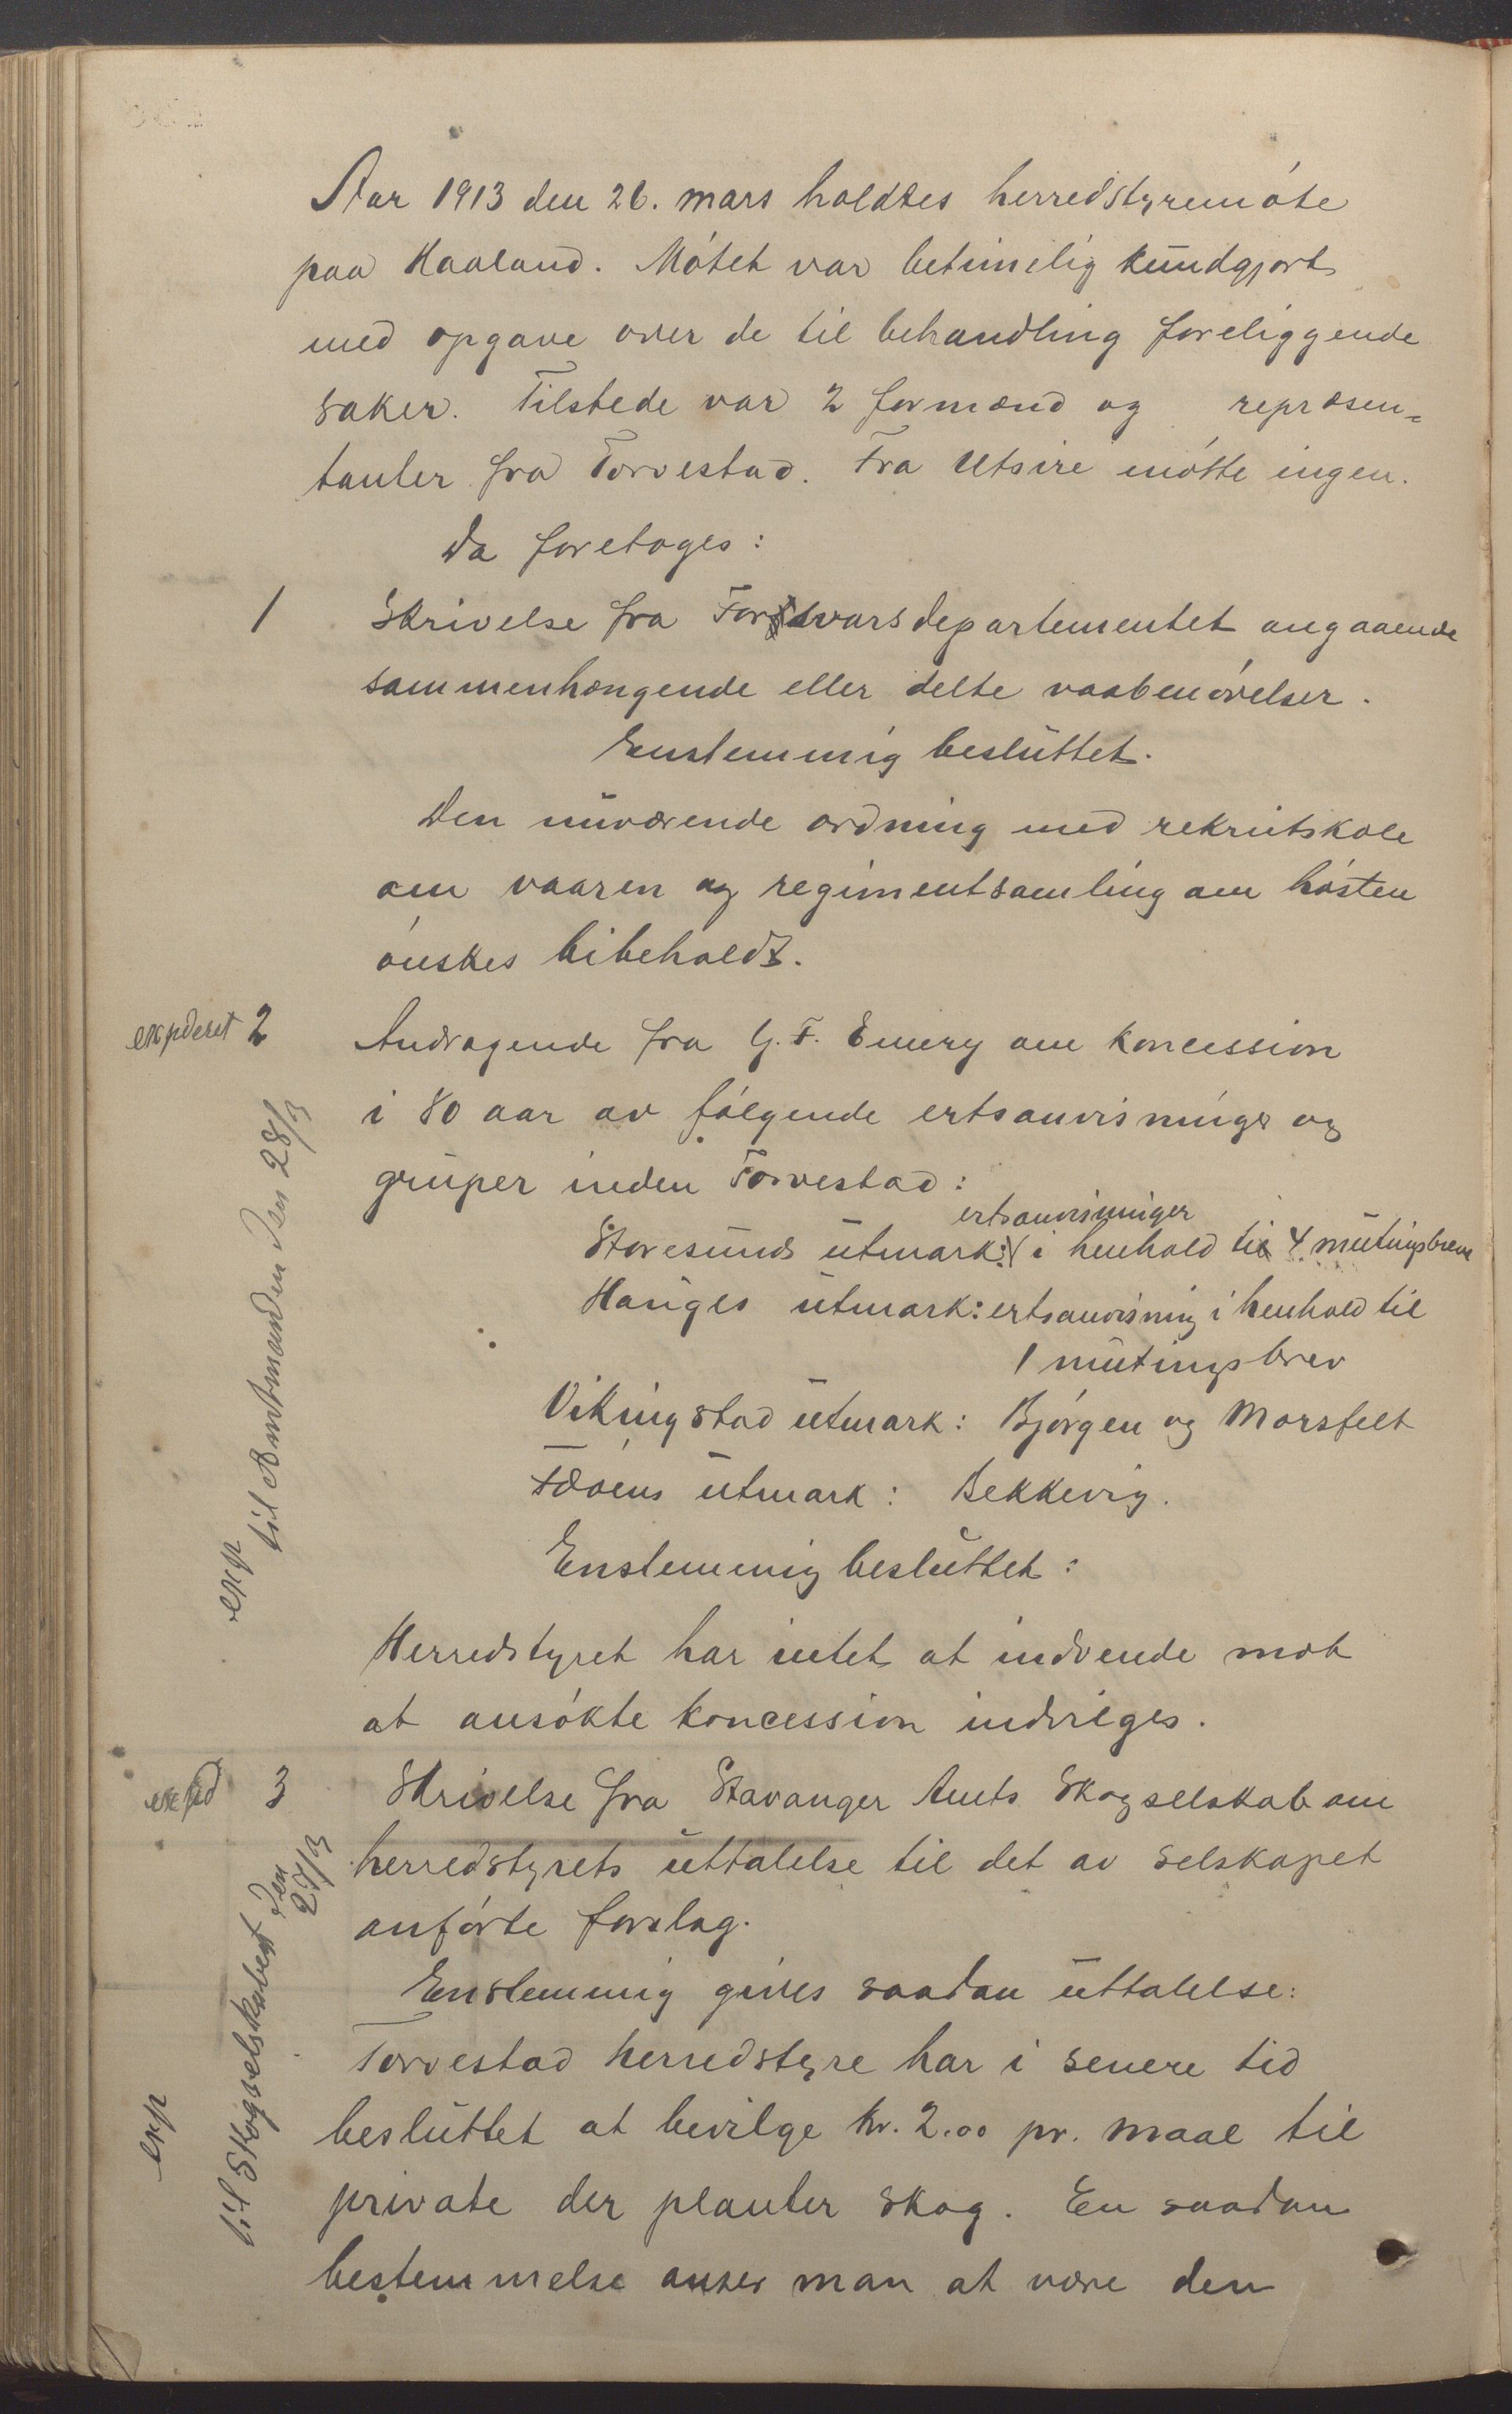 Aar 1913 den 26. mars holdtes herredstyremöte
paa Haaland. Mötet var betimelig kundgjort
med opgave over de til behandling foreliggende
saker. Tilstede var 2 formænd og repræsen=
tanter fra Torvestad. Fra Utsire mötte ingen.
Da foretoges:
1 Skrivelse fra Forsvarsdepartementet angaaende
sammenhængende eller delte vaabenövelser.
Enstemmig besluttet.
Den nuværende ordning med rekrutskole
om vaaren og regimentsamling om hösten
önskes bibeholdt.
expderet 2 Andragende fra G. F. Emery om koncession
i 80 aar av fölgende ertsanvisninger og
gruper inden Torvestad:
ertsanvisninger
Storesunds utmark: i henhold til 4 mutingsbreve
Hauges utmark: ertsanvisning i henhold til
1 mutingsbrev
Vikingstad utmark: Björgen og Morsfelt
Fæöens utmark: Bekkevig.
Enstemmig besluttet:
exp
til Amtmanden den 28/3
Herredstyret har intet at indvende mot
at ansökte koncession indvilges.
expd 3 Skrivelse fra Stavanger Amts Skogselskab om
herredstyrets uttalelse til det av selskapet
anförte forslag.
Enstemmig gives saadan uttalelse:
Torvestad herredstyre har i senere tid
besluttet at bevilge kr. 2.00 pr. maal til
private der planter skog. En saadan
bestemmelse anser man at være den
exp
til Skogselskabet den
27/3